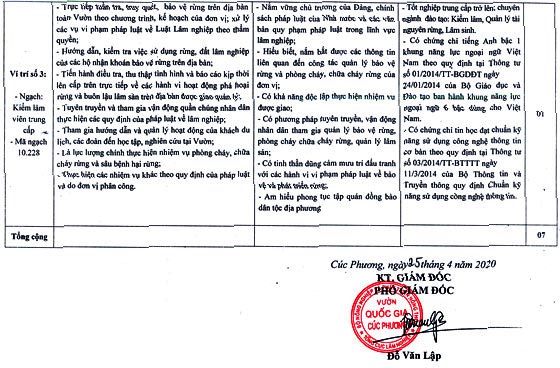 - Trực tiếp tuần tra, truy quét, bảo vệ rừng trên địa bàn
toàn Vườn theo chương trình, kế hoạch của đơn vị; xử lý
các vụ vi phạm pháp luật về Luật Lâm nghiệp theo thẩm
quyền;
- Hướng dẫn, kiểm tra việc sử dụng rừng, đất lâm nghiệp
của các hộ nhận khoán bảo vệ rừng trên địa bàn;
- Tiến hành điều tra, thu thập tình hình và báo cáo kịp thời
lên cấp trên trực tiếp về các hành vi hoạt động phá hoại
rừng và buôn lậu lâm sản trên địa bàn được giao quản lý.
- Tuyên truyền và tham gia vận động quần chúng nhân dân
thực hiện các quy định của pháp luật về lâm nghiệp;
- Tham gia hướng dẫn và quản lý hoạt động của khách du
lịch, các đoàn đến học tập, nghiên cứu tại Vườn;
- Là lực lượng chính thực hiện nhiệm vụ phòng cháy, chữa
cháy rừng và sâu bệnh hại rừng;
- Thực hiện các nhiệm vụ khác theo quy định của pháp
luật và do đơn vị phân công.
Vị trí số 3:
- Ngạch:
Kiểm lâm
viên trung
cấp
- Mã ngạch
10.228
- Nắm vững chủ trương của Đảng, chính
sách pháp luật của Nhà nước và các văn
bản quy phạm pháp luật trong lĩnh vực
lâm nghiệp;
- Hiểu biết, nắm bắt được các thông tin
liên quan đến công tác quản lý bảo vệ
rừng và phòng cháy, chữa cháy rừng của
đơn vị;
- Có khả năng độc lập thực hiện nhiệm vụ
được giao;
- Có phương pháp tuyên truyền, vận động
nhân dân tham gia quản lý bảo vệ rừng,
phòng cháy chữa cháy rừng, quản lý lâm
sản;
- Có tinh thần dũng cảm mưu trí đấu tranh
với các hành vi vi phạm pháp luật về bảo
vệ và phát triển rừng;
- Am hiểu phong tục tập quán đồng bào
dân tộc địa phương
- Tốt nghiệp trung cấp trở lên; chuyên
ngành đào tạo: Kiểm lâm, Quản lý tài
nguyên rừng, Lâm sinh.
- Có chứng chỉ tiếng Anh bậc 1
khung năng lực ngoại ngữ Việt
Nam theo quy định tại Thông tư
số 01/2014/TT-BGDĐT ngày
24/01/2014 của Bộ Giáo dục và
Đào tạo ban hành khung năng lực
ngoại ngữ 6 bậc dùng cho Việt
Nam.
- Có chứng chỉ tin học đạt chuẩn kỹ
năng sử dụng công nghệ thông tin
cơ bản theo quy định tại Thông tư
số 03/2014/TT-BTTTT ngày
11/3/2014 của Bộ Thông tin và
Truyền thông quy định Chuẩn kỹ
năng sử dụng công nghệ thông tin.
01
Tổng cộng
07
Cúc Phương, ngày 25 tháng 4 năm 2020
KT. GIÁM ĐỐC
PHÓ GIÁM ĐỐC
VƯỜN
QUỐC GIA
CÚC PHƯƠNG
Đỗ Văn Lập